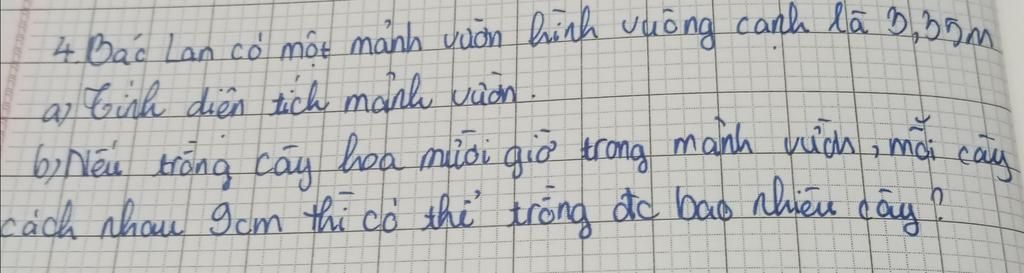 4. Bác Lan có một mảnh vườn hình vuông cạnh là 3,35m
a) Tính diện tích mảnh vườn.
b) Nếu trồng cây hoa mười giờ trong mảnh vườn, mỗi cây
cách nhau 9cm thì có thể trồng đc bao nhiêu cây?